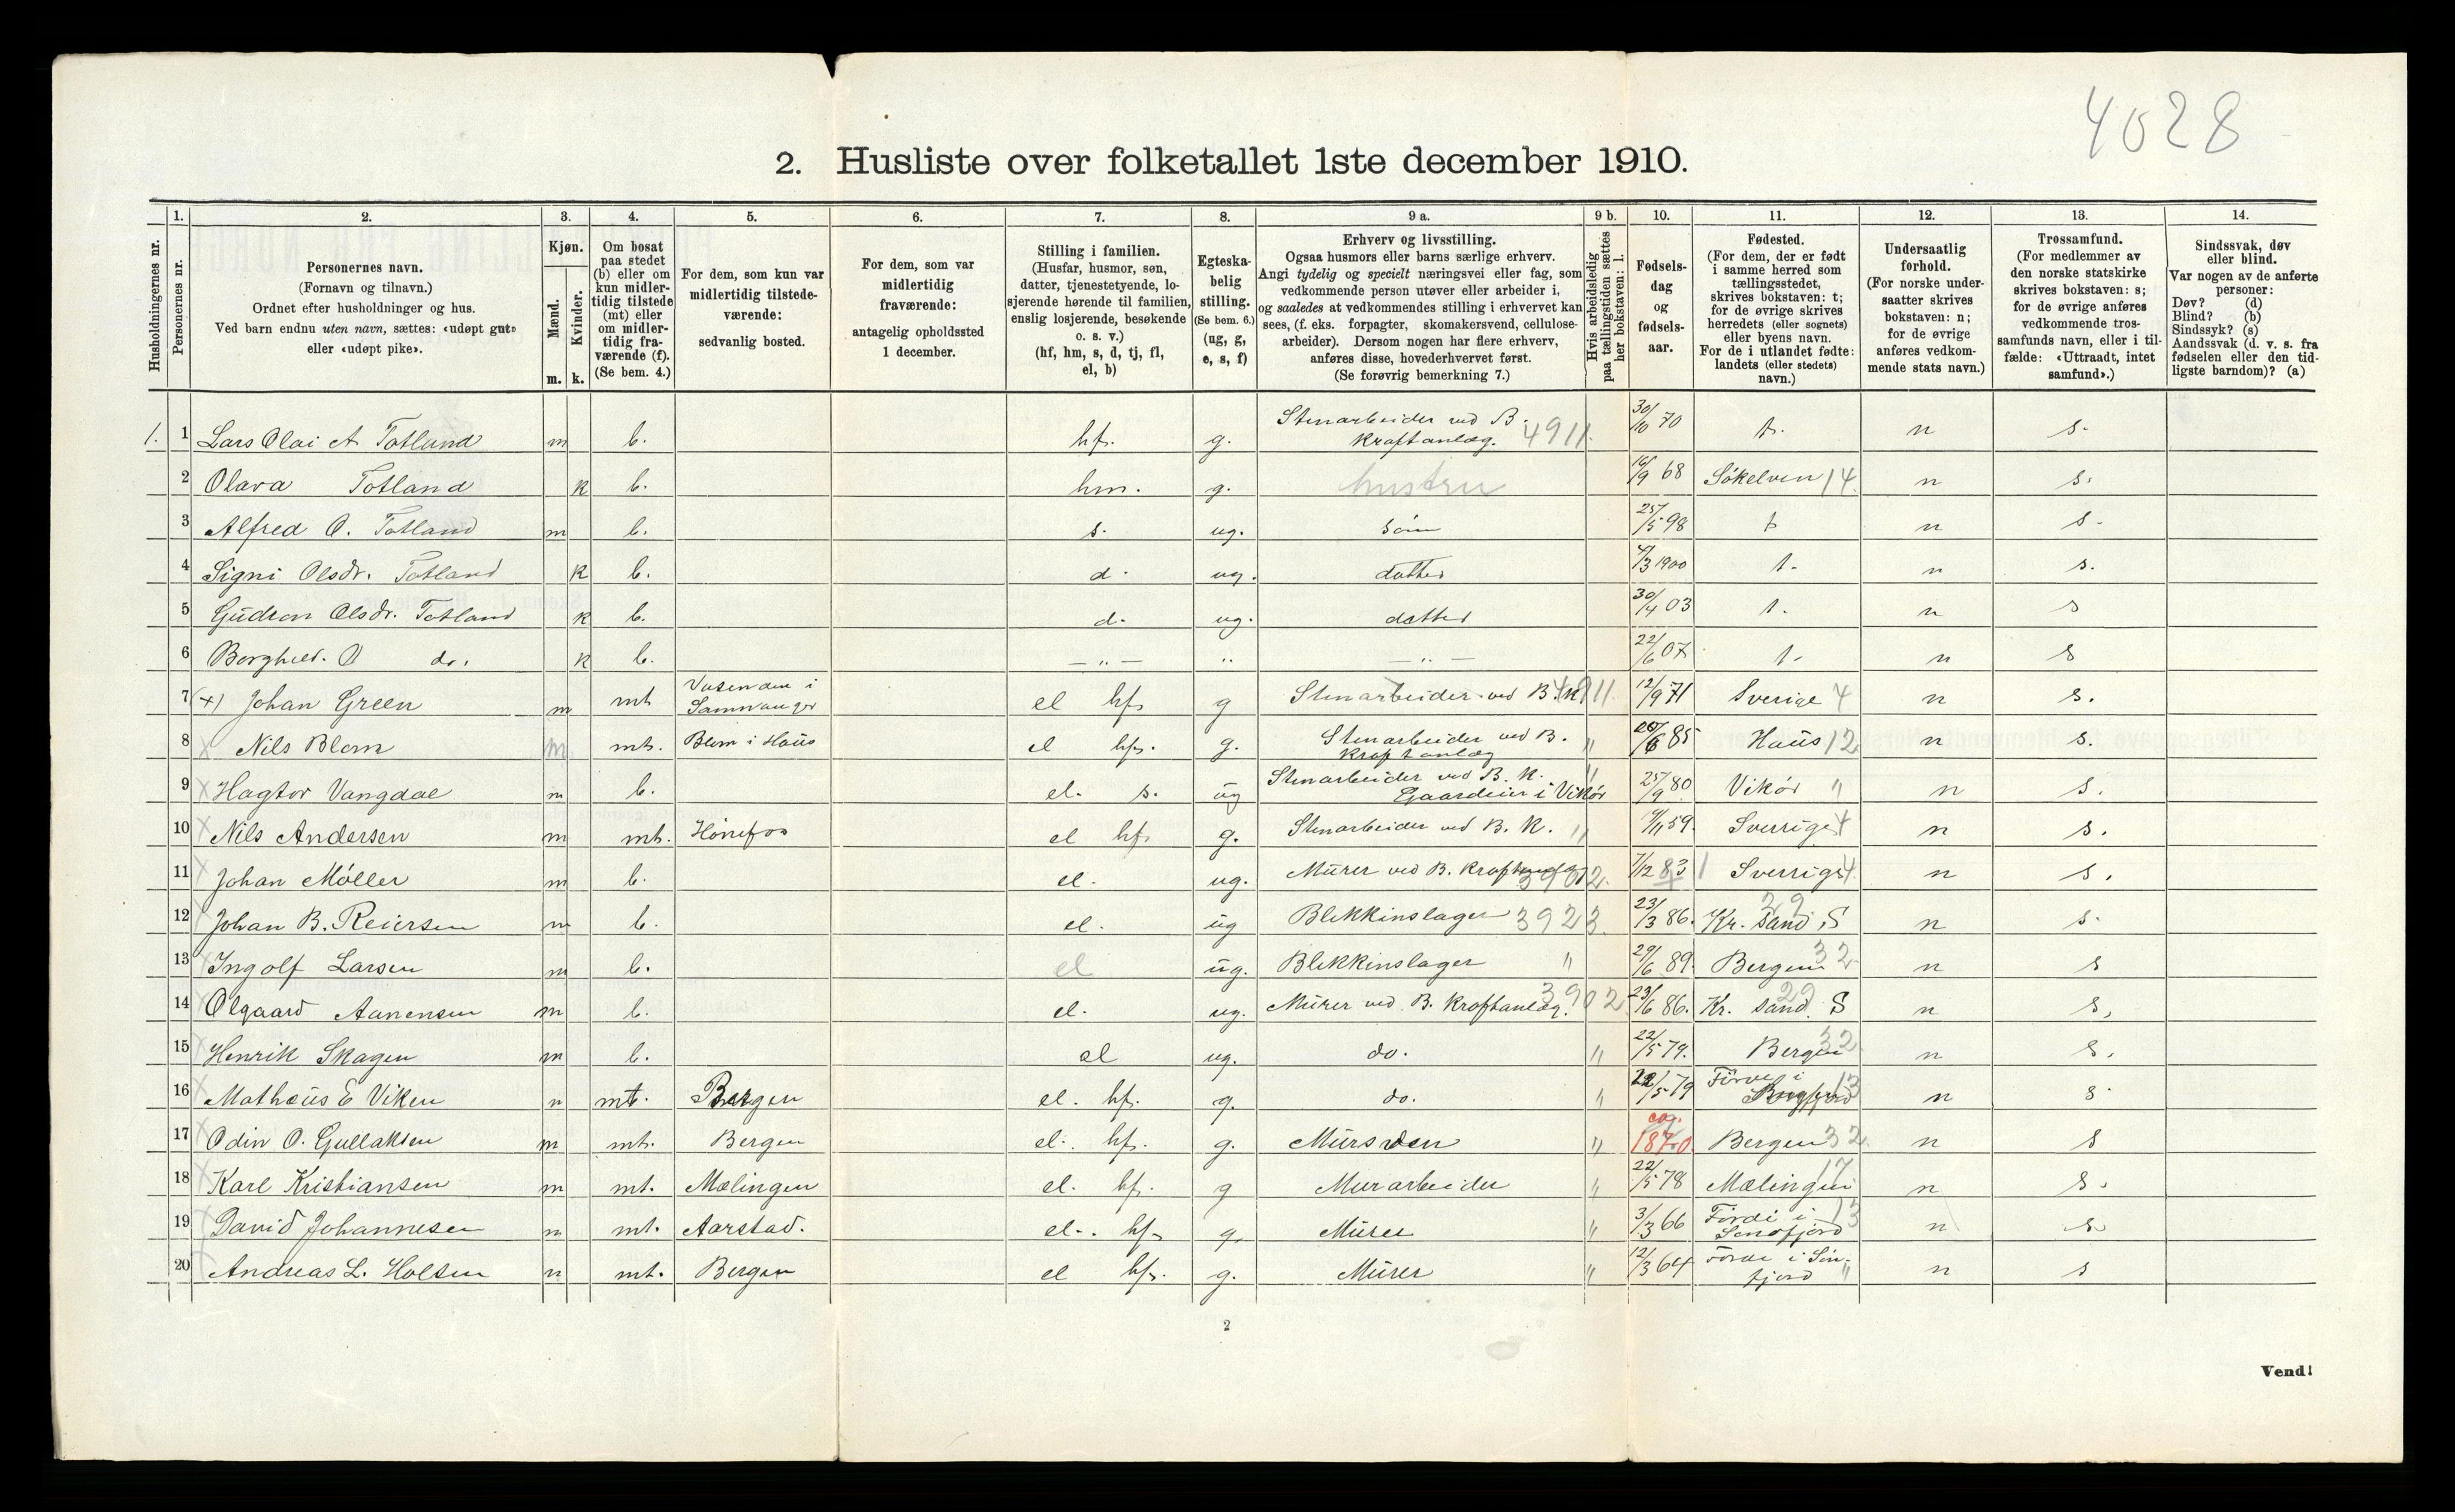 4028
2. Husliste over folketallet 1ste december 1910.
Husholdningernes nr.
1. Personernes nr.
2. Personernes navn. (Fornavn og tilnavn.) Ordnet efter husholdninger og hus. Ved barn endnu uten navn, sættes: «udøpt gut» eller «udøpt pike».
3. Kjøn. Mænd. m. Kvinder. k.
4. Om bosat paa stedet (b) eller om kun midlertidig tilstede (mt) eller om midlertidig fraværende (f). (Se bem. 4.)
5. For dem, som kun var midlertidig tilstedeværende: sedvanlig bosted.
6. For dem, som var midlertidig fraværende: antagelig opholdssted 1 december.
7. Stilling i familien. (Husfar, husmor, søn, datter, tjenestetyende, losjerende hørende til familien, enslig losjerende, besøkende o. s. v.) (hf, hm, s, d, tj, fl, el, b)
8. Egteskabelig stilling. (Se bem. 6.) (ug, g, e, s, f)
9 a. Erhverv og livsstilling. Ogsaa husmors eller barns særlige erhverv. Angi tydelig og specielt næringsvei eller fag, som vedkommende person utøver eller arbeider i, og saaledes at vedkommendes stilling i erhvervet kan sees, (f. eks. forpagter, skomakersvend, cellulosearbeider). Dersom nogen har flere erhverv, anføres disse, hovederhvervet først. (Se forøvrig bemerkning 7.)
9 b. Hvis arbeidsledig paa tællingstiden sættes her bokstaven: l.
10. Fødselsdag og fødselsaar.
11. Fødested. (For dem, der er født i samme herred som tællingsstedet, skrives bokstaven: t; for de øvrige skrives herredets (eller sognets) eller byens navn. For de i utlandet fødte: landets (eller stedets) navn.)
12. Undersaatlig forhold. (For norske undersaatter skrives bokstaven: n; for de øvrige anføres vedkommende stats navn.)
13. Trossamfund. (For medlemmer av den norske statskirke skrives bokstaven: s; for de øvrige anføres vedkommende trossamfunds navn, eller i tilfælde: «Uttraadt, intet samfund».)
14. Sindssvak, døv eller blind. Var nogen av de anførte personer: Døv? (d) Blind? (b) Sindssyk? (s) Aandssvak (d. v. s. fra fødselen eller den tidligste barndom)? (a)
1. 1 Lars Olai A Totland m b. hf. g. Stenarbeider ved B. Kraftanlæg. 4911. 30/10 70 t. n s.
2 Olava Totland k b. hm. g. hustru 16/9 68 Sökelven 14 n s.
3 Alfred O. Totland m b. s. ug. sön 25/5 98 t n s.
4 Signi Olsdr. Totland k b. d. ug. datter 4/3 1900 t. n s.
5 Gudron Olsdr. Totland k b. d. ug. datter 30/4 03 t. n s
6 Borghild. O do. k b. — „ — „ — „ — 22/6 07 t. n s
7 (x) Johan Green m mt Samnanger el hf g Stenarbeider ved B. K 4911. 12/9 71 Sverige 4 n s.
8 x Nils Blom m mt. Blom i Haus el hf. g. Stenarbeider ved B. Kraftanlæg " /6 85 Haus 12 n s.
9 x Hagtor Vangdal m b. el. s. ug Stenarbeider ved B. K. Gaardeier i Vikör " 25/9 80 Vikör " n s.
10 x Nils Andersen m mt. Hönefos el hf. g. Stenarbeider ved B. K. " /11 59. Sverrige 4 n s.
11 x Johan Möller m b. el. ug. Murer ved B. Kraftanlæg 3902. 7/12 83 Sverrige 4. n s.
12 x Johan B. Reiersen m b. el. ug Blikkinslager 3923. 23/3 86. Kr. sand. S 29 n s.
13 x Ingolf Larsen m b. el ug. Blikkinslager " 29/6 89. Bergen 32 n s
14 x Olgaard Aanensen m b. el. ug. Murer ved B. Kraftanlæg. 3902 23/6 86. Kr. sand. S 29 n s,
15 x Henrik Skagen m b. el ug. do. " 22/5 79. Bergen 32 n s.
16 x Mathæus E Viken m mt. Bergen el. hf. g. do. " 22/5 79 13 n s
17 x Odin O. Gullaksen m mt. Bergen el. hf. g. " ca. 1870. Bergen 32. n s
18 x Karl Kristiansen m mt. Mælingen el. hf. g Murarbeider " 22/5 78 Mælingen 17 n s.
19 x David Johannesen m mt. Aarstad. el. hf. g. Murer " 3/3 66 Förde i Sönfjord 13 n s
20 x Andreas L. Holsen m mt. Bergen el hf. g. Murer " 12/3 64 Förde i Sönfjord " n s
2
Vend!